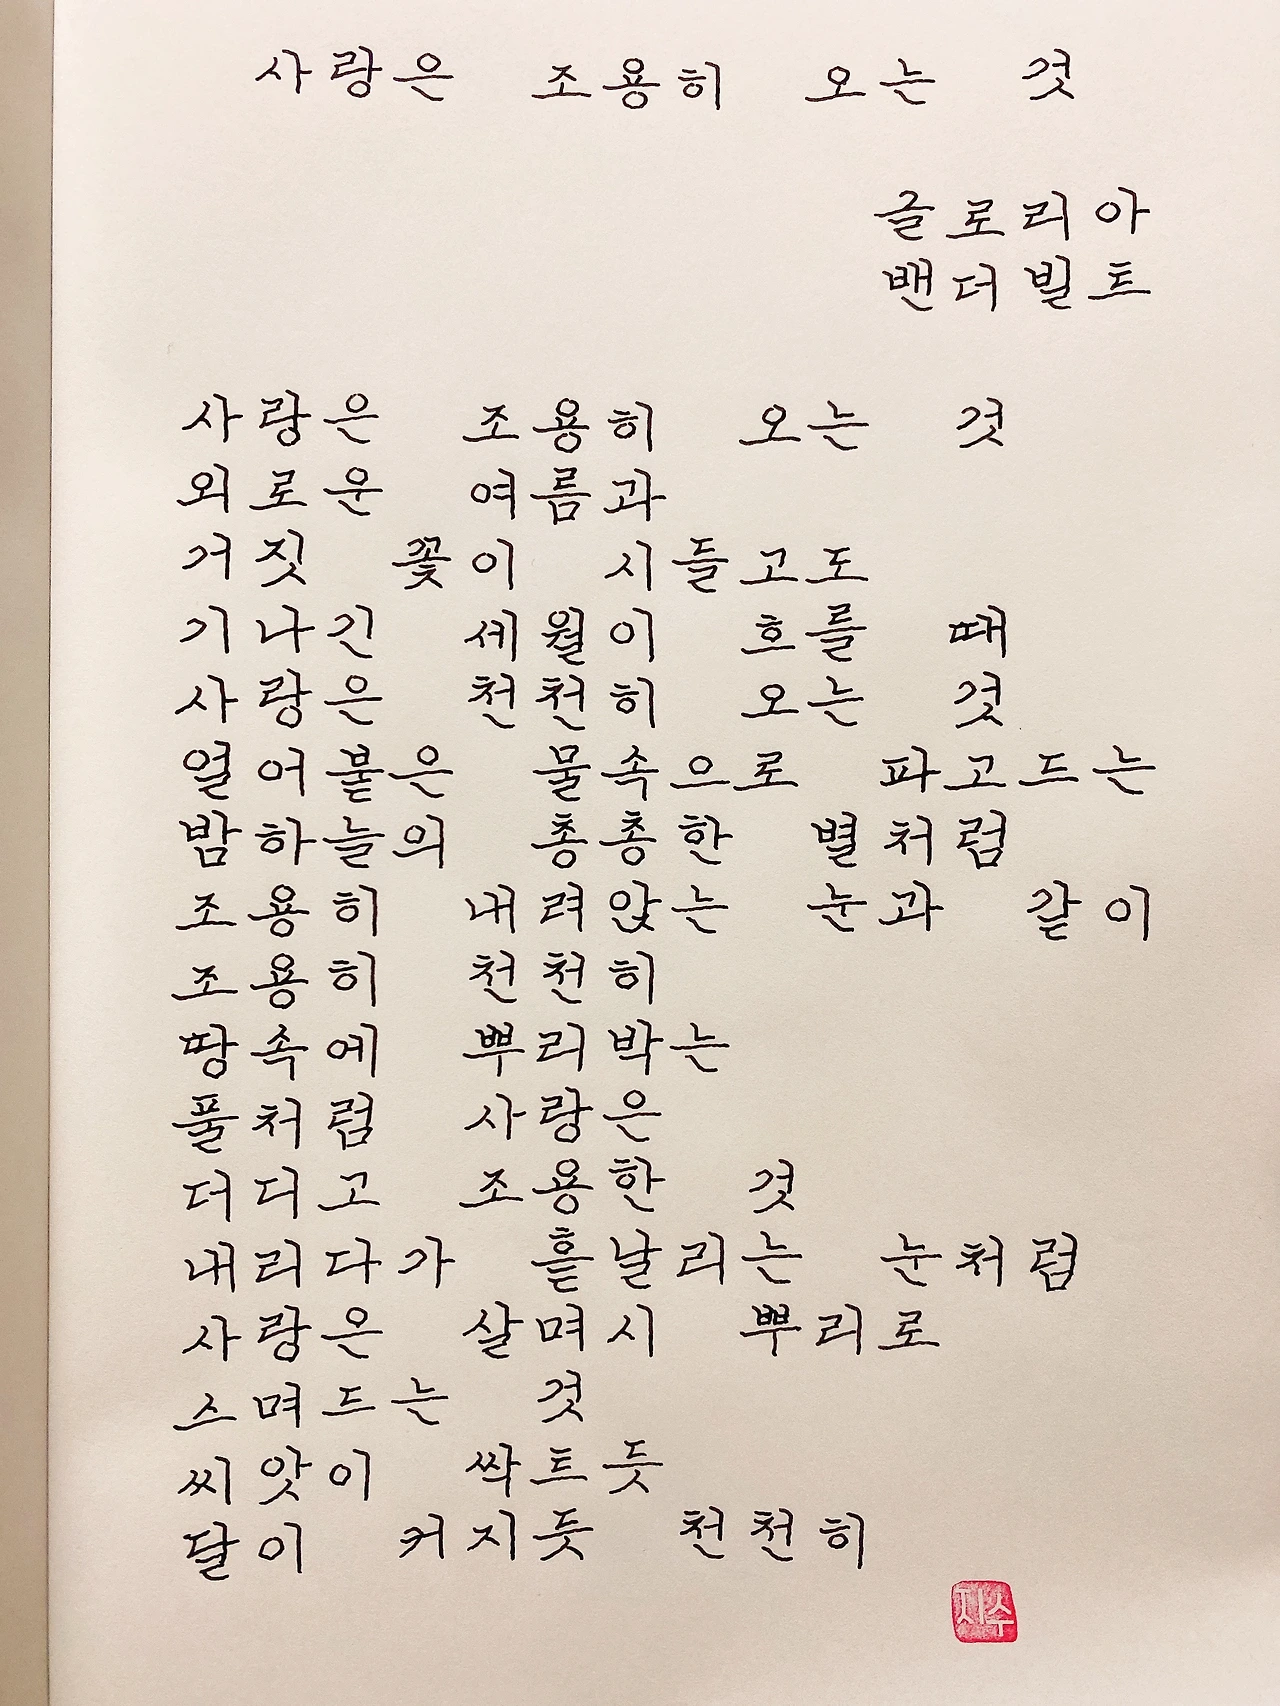 사랑은 조용히 오는 것
글로리아
밴더빌트
사랑은 조용히 오는 것
외로운 여름과
거짓 꽃이 시들고도
기나긴 세월이 흐를 때
사랑은 천천히 오는 것
얼어붙은 물속으로 파고드는
밤하늘의 총총한 별처럼
조용히 내려앉는 눈과 같이
조용히 천천히
땅속에 뿌리박는
풀처럼 사랑은
더디고 조용한 것
내리다가 흩날리는 눈처럼
사랑은 살며시 뿌리로
스며드는 것
씨앗이 싹트듯
달이 커지듯 천천히
지수